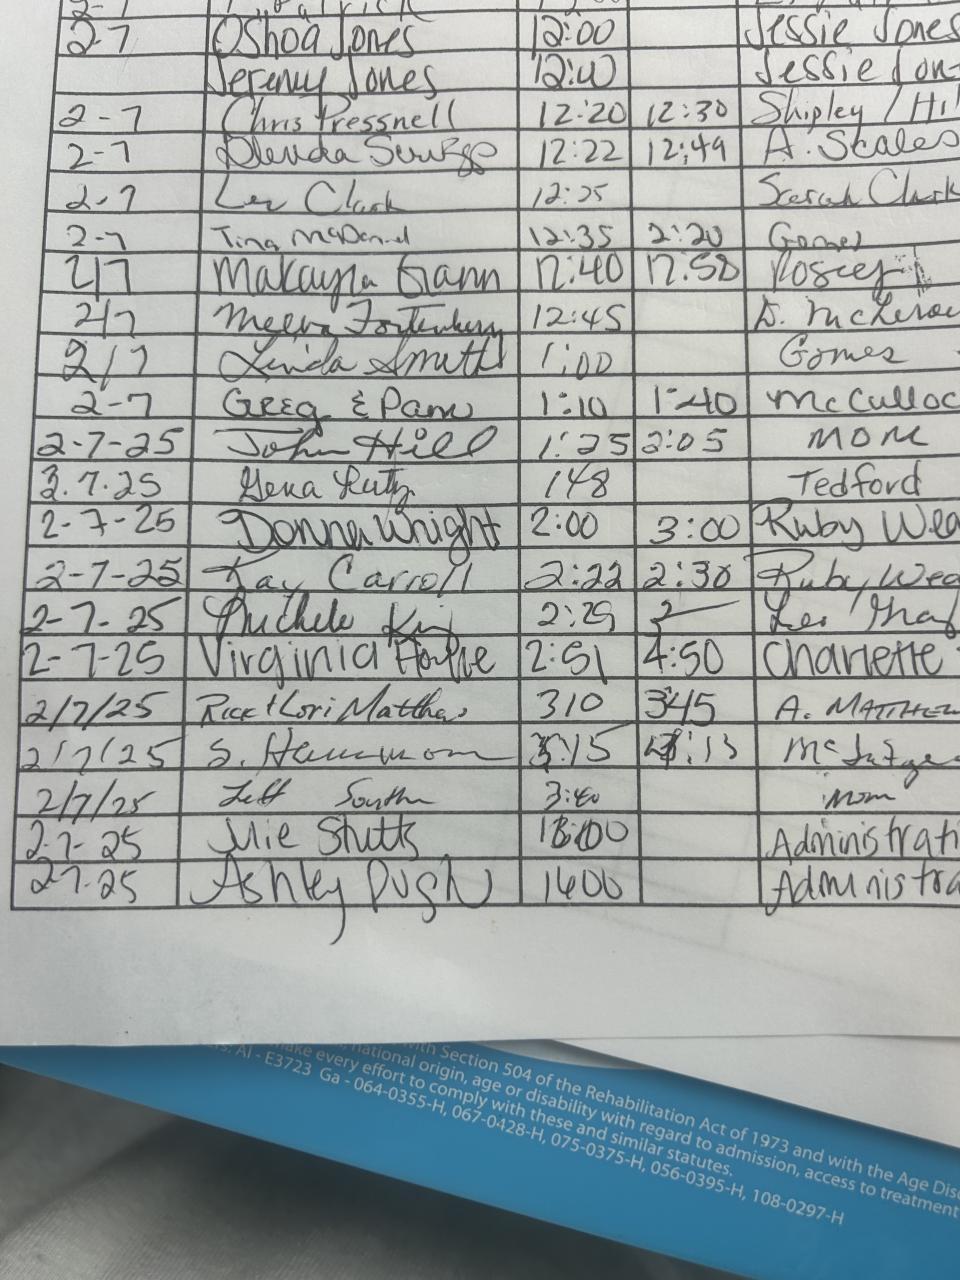 2-7 Oshoa Jones 12:00 Jessie Jones
Jeremy Jones 12:10 Jessie Jon
2-7 Chris Pressnell 12:20 12:30 Shipley / Hil
2-7 12:22 12:49 A. Scales
2-7 Lee Clark 12:25 Sarah Clark
2-7 Tina McDaniel 12:35 2:20 Gomes
2/7 Makayla Gann 12:40 12:58
2/7 Fortenberry 12:45 D.
2/7 Linda Smith 1:00 Gomes
2-7 Greg & Pam 1:10 1:40 McCulloc
2-7-25 John Hill 1:25 2:05 MOM
2.7.25 Gena 148 Tedford
2-7-25 Donna Wright 2:00 3:00 Ruby Wea
2-7-25 Kay Carroll 2:22 2:30 Ruby Wea
2-7-25 Michele King 2:29
2-7-25 Virginia 2:51 4:50 Charlette
2/7/25 Rick + Lori Matthews 310 345 A. MATTHEW
2/7/25 S. Hammon :15 :13
2/7/25 Jeff South 3:40 Mom
2-7-25 Julie Shutts Administrati
2-7-25 Ashley Pugh 1600 Administra
with Section 504 of the Rehabilitation Act of 1973 and with the Age Disc
national origin, age or disability with regard to admission, access to treatment
make every effort to comply with these and similar statutes.
Al - E3723 Ga - 064-0355-H, 067-0428-H, 075-0375-H, 056-0395-H, 108-0297-H